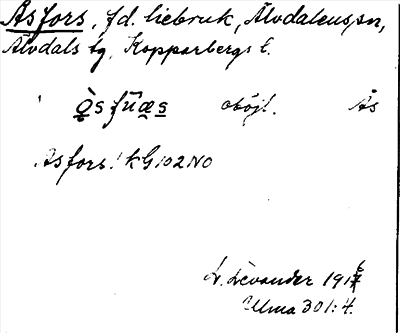 Åsfors, f.d. liebruk, Älvdalens sn,
Älvdals tg, Kopparbergs l.
o̖̱sfu̇æ̱s̱ oböjl. Ås
Åsfors! kG102NO
L. Levander 191
Ulma 301:4.